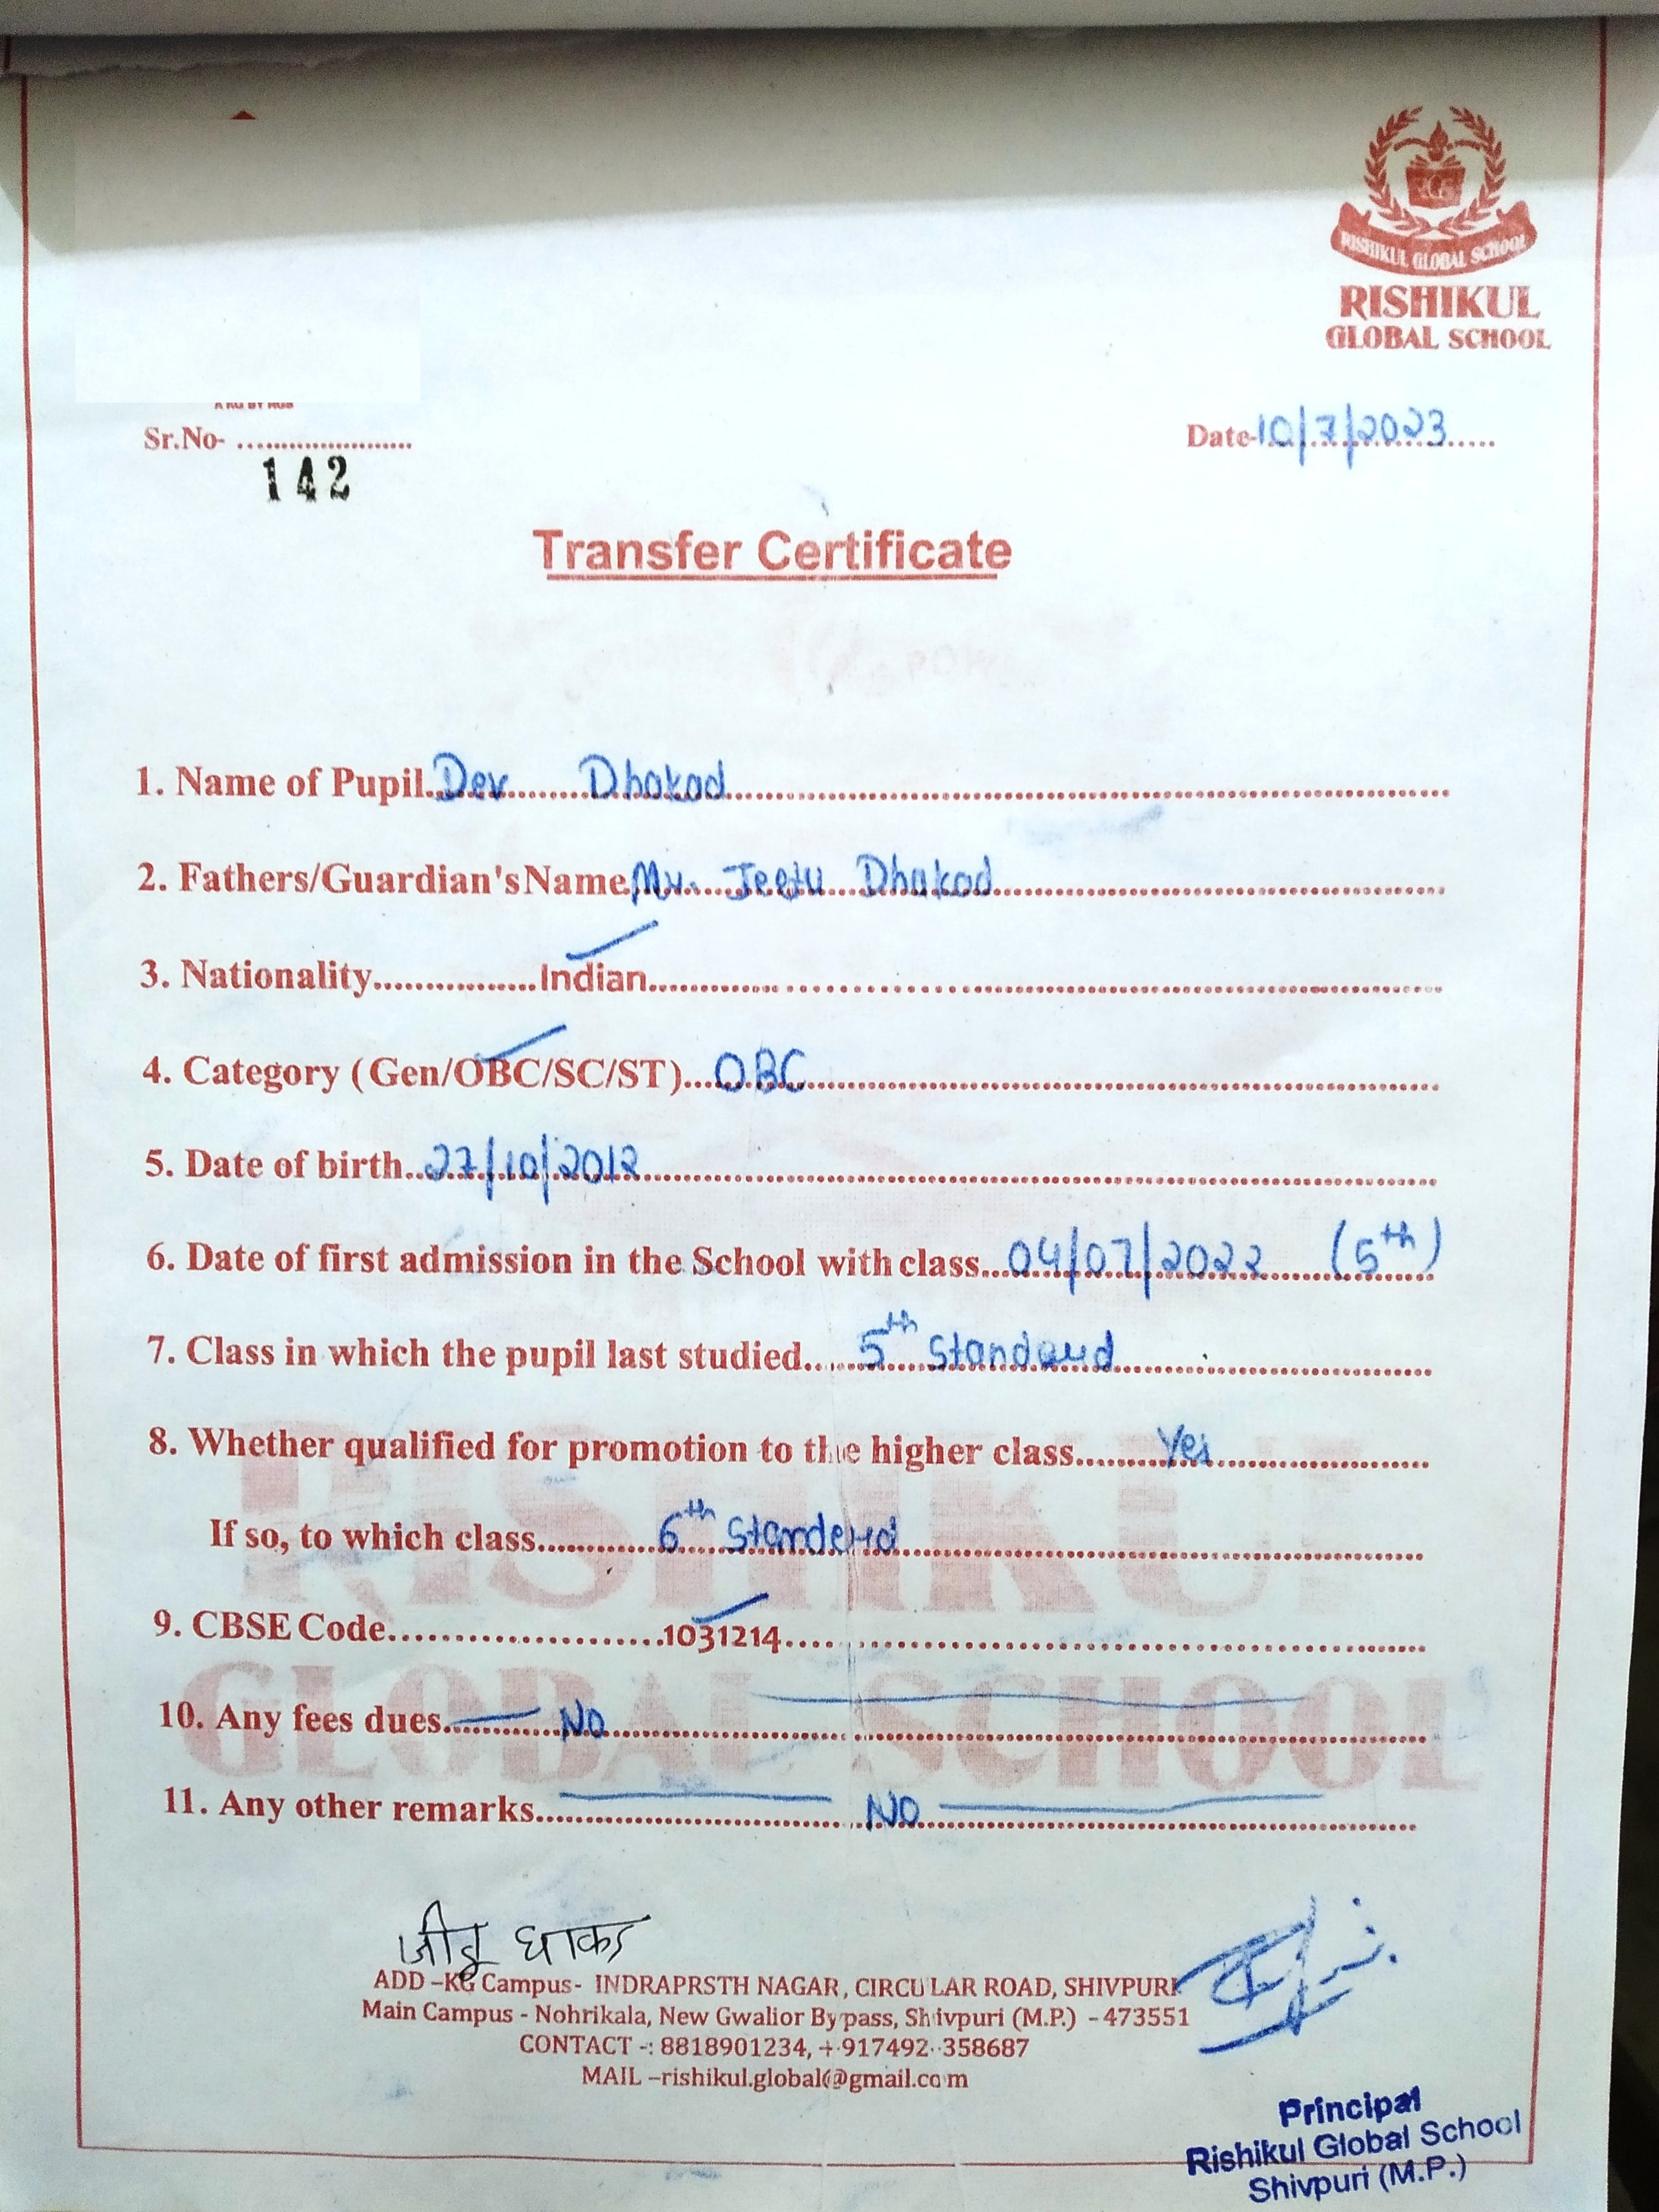 RISHIKUL GLOBAL SCHOOL
RISHIKUL
GLOBAL SCHOOL
A KG BY RGS
Sr.No- ........................
142
Date-10/7/2023
Transfer Certificate
1. Name of Pupil Dev Dhakad
2. Fathers/Guardian's Name Mr. Jeetu Dhakad
3. Nationality................Indian
4. Category (Gen/OBC/SC/ST)...OBC
5. Date of birth..27/10/2012
6. Date of first admission in the School with class...04/07/2022 (5th)
7. Class in which the pupil last studied.... 5th Standard
8. Whether qualified for promotion to the higher class........ Yes
If so, to which class............ 6th Standerd
9. CBSE Code.......................1031214
10. Any fees dues.......... NO
11. Any other remarks.......... NO
जीतू धाकड
ADD –KG Campus- INDRAPRSTH NAGAR, CIRCULAR ROAD, SHIVPURI
Main Campus - Nohrikala, New Gwalior Bypass, Shivpuri (M.P.) - 473551
CONTACT -: 8818901234, +917492-358687
MAIL –rishikul.global@gmail.com
Principal
Rishikul Global School
Shivpuri (M.P.)
RISHIKUL
GLOBAL SCHOOL